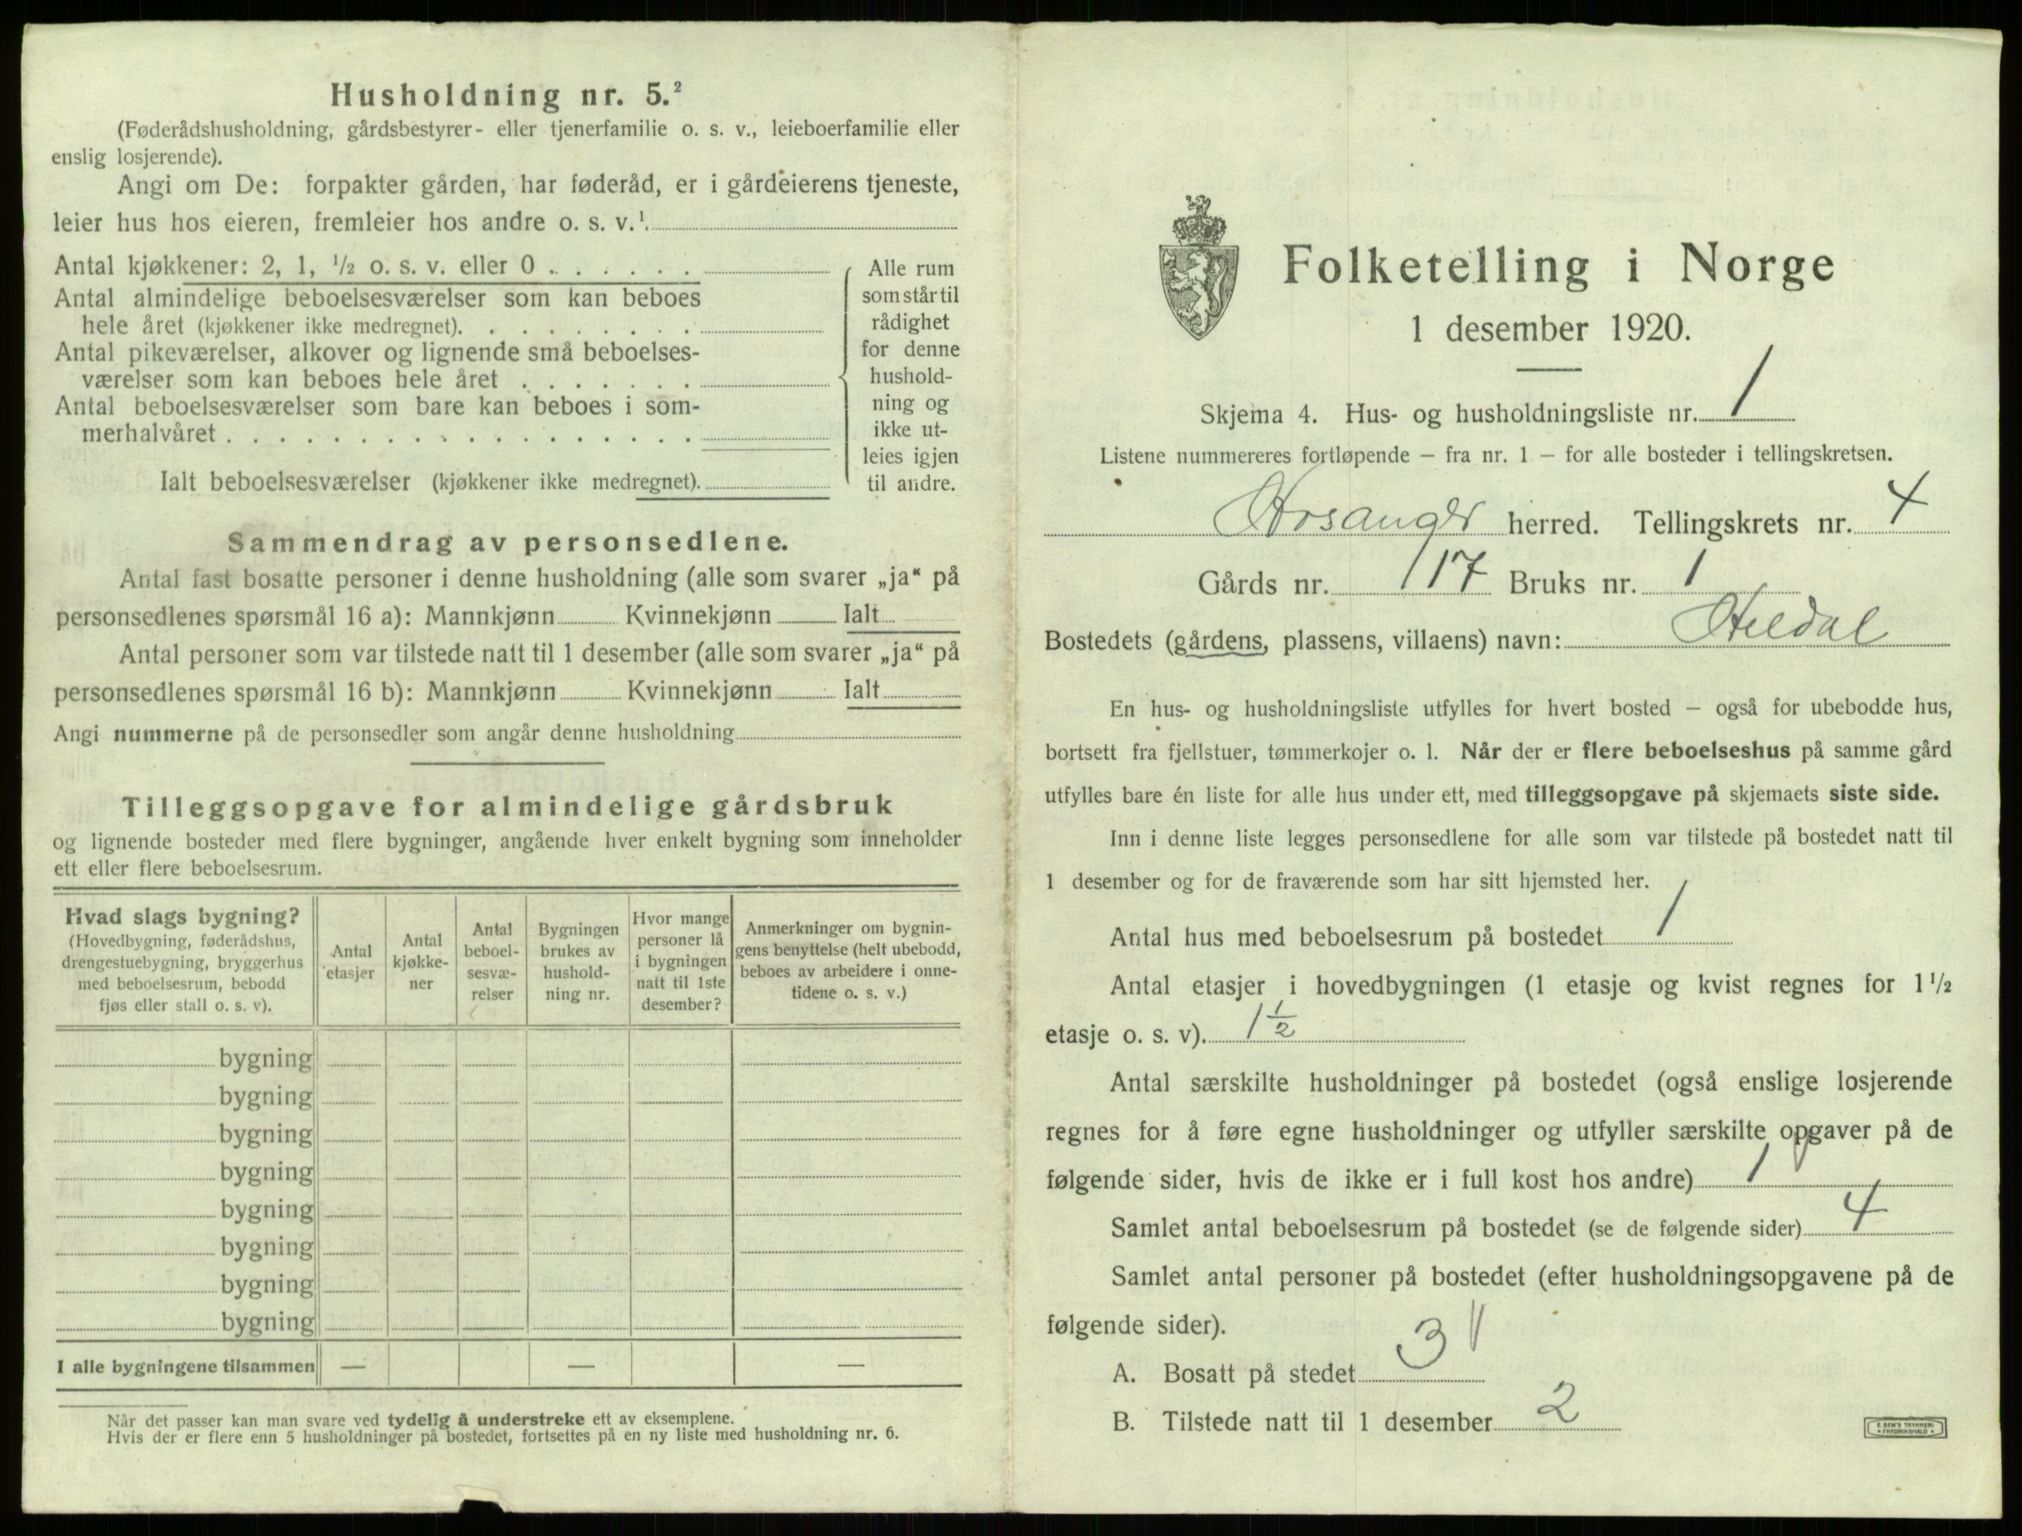 Husholdning nr. 5.²
(Føderådshusholdning, gårdsbestyrer- eller tjenerfamilie o. s. v., leieboerfamilie eller
enslig losjerende).
Angi om De: forpakter gården, har føderåd, er i gårdeierens tjeneste,
leier hus hos eieren, fremleier hos andre o. s. v.¹
Antal kjøkkener: 2, 1, ½ o. s. v. eller 0
Antal almindelige beboelsesværelser som kan beboes
hele året (kjøkkener ikke medregnet).
Antal pikeværelser, alkover og lignende små beboelses-
værelser som kan beboes hele året
Antal beboelsesværelser som bare kan beboes i som-
merhalvåret
Ialt beboelsesværelser (kjøkkener ikke medregnet).
Alle rum
som står til
rådighet
for denne
hushold-
ning og
ikke ut-
leies igjen
til andre.
Sammendrag av personsedlene.
Antal fast bosatte personer i denne husholdning (alle som svarer „ja“ på
personsedlenes spørsmål 16 a): Mannkjønn Kvinnekjønn Ialt
Antal personer som var tilstede natt til 1 desember (alle som svarer „ja“ på
personsedlenes spørsmål 16 b): Mannkjønn Kvinnekjønn Ialt
Angi nummerne på de personsedler som angår denne husholdning
Tilleggsopgave for almindelige gårdsbruk
og lignende bosteder med flere bygninger, angående hver enkelt bygning som inneholder
ett eller flere beboelsesrum.
Hvad slags bygning?
(Hovedbygning, føderådshus,
drengestuebygning, bryggerhus
med beboelsesrum, bebodd
fjøs eller stall o. s. v).
Antal
etasjer
Antal
kjøkke-
ner
Antal
beboel-
sesvæ-
relser
Bygningen
brukes av
hushold-
ning nr.
Hvor mange
personer lå
i bygningen
natt til 1ste
desember?
Anmerkninger om bygnin-
gens benyttelse (helt ubebodd,
beboes av arbeidere i onne-
tidene o. s. v.)
bygning
bygning
bygning
bygning
bygning
bygning
bygning
bygning
I alle bygningene tilsammen — — —
Når det passer kan man svare ved tydelig å understreke ett av eksemplene.
Hvis der er flere enn 5 husholdninger på bostedet, fortsettes på en ny liste med husholdning nr. 6.
Folketelling i Norge
1 desember 1920.
Skjema 4. Hus- og husholdningsliste nr. 1
Listene nummereres fortløpende – fra nr. 1 – for alle bosteder i tellingskretsen.
Hosanger herred. Tellingskrets nr. 4
Gårds nr. 117 Bruks nr. 1
Bostedets (gårdens, plassens, villaens) navn: Hildal
En hus- og husholdningsliste utfylles for hvert bosted – også for ubebodde hus,
bortsett fra fjellstuer, tømmerkojer o. l. Når der er flere beboelseshus på samme gård
utfylles bare én liste for alle hus under ett, med tilleggsopgave på skjemaets siste side.
Inn i denne liste legges personsedlene for alle som var tilstede på bostedet natt til
1 desember og for de fraværende som har sitt hjemsted her.
Antal hus med beboelsesrum på bostedet 1
Antal etasjer i hovedbygningen (1 etasje og kvist regnes for 1½
etasje o. s. v). 1½
Antal særskilte husholdninger på bostedet (også enslige losjerende
regnes for å føre egne husholdninger og utfyller særskilte opgaver på de
følgende sider, hvis de ikke er i full kost hos andre) 1
Samlet antal beboelsesrum på bostedet (se de følgende sider) 4
Samlet antal personer på bostedet (efter husholdningsopgavene på de
følgende sider).
A. Bosatt på stedet 3
B. Tilstede natt til 1 desember 2
E. SEM'S TRYKKERI
FREDRIKSHALD